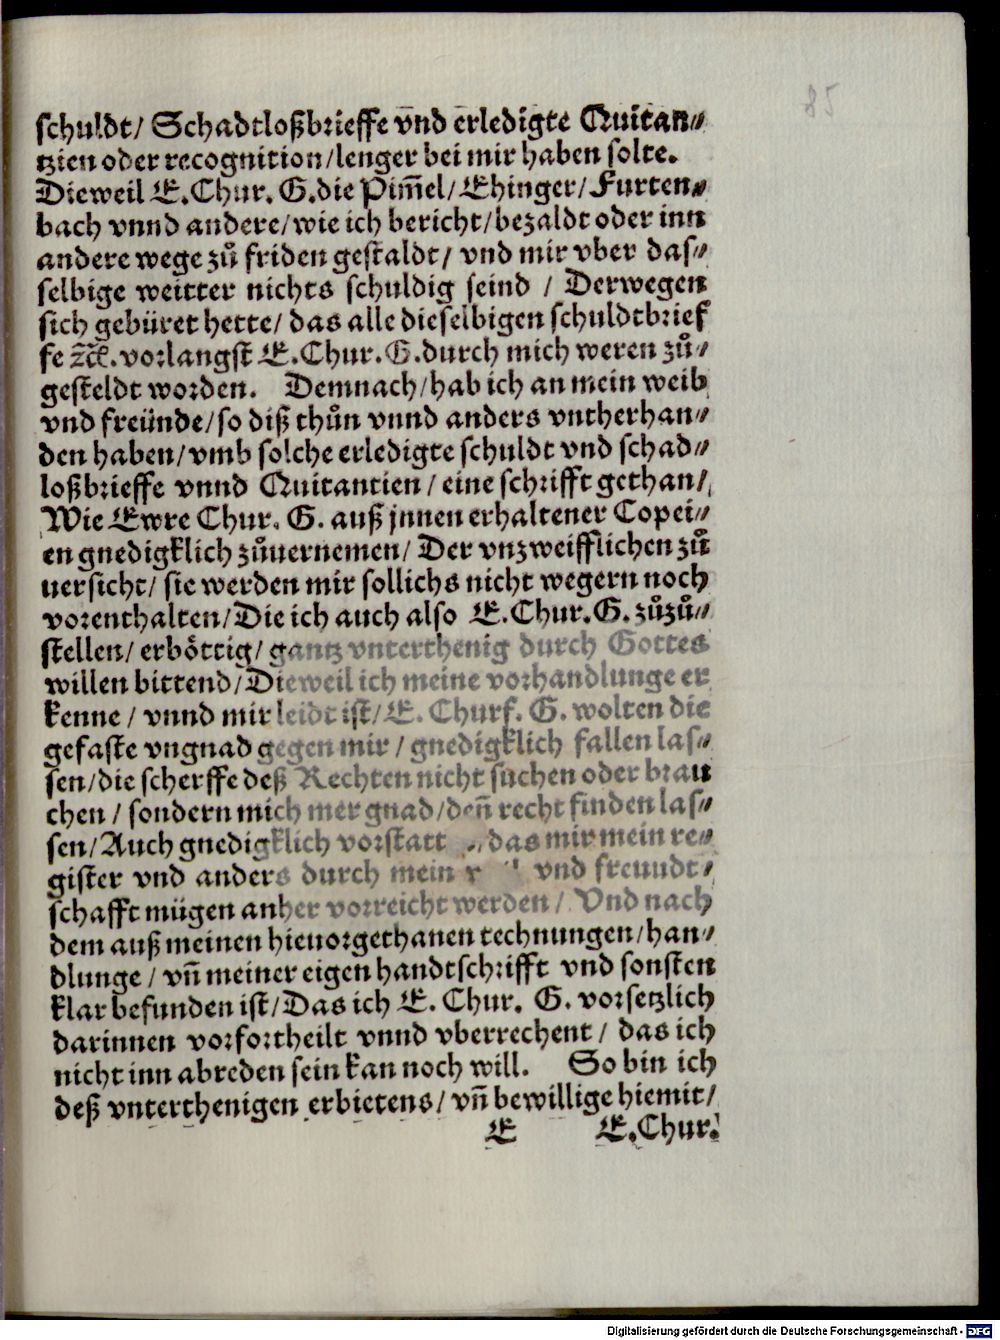 85
schuldt/ Schadtloßbrieffe vñd erledigte Quitan⸗
tzien oder recognition/lenger bei mir haben solte.
Dieweil E.Chur. G.die Pim̃el/Ehinger/Furten⸗
bach vnnd andere/wie ich bericht/bezaldt oder inn
andere wege zů friden gestaldt/ vnd mir vber das⸗
selbige weitter nichts schuldig seind / Derwegen
sich gebüret hette/ das alle dieselbigen schuldtbrief
fe ꝛc̃. vorlangst E.Chur.G.durch mich weren zů⸗
gesteldt worden. Demnach/hab ich an mein weib
vnd freünde/so diß thůn vnnd anders vntherhan⸗
den haben/vmb solche erledigte schuldt vnd schad⸗
loßbrieffe vnnd Quitantien/eine schrifft gethan/
Wie Ewre Chur. G. auß jnnen erhaltener Copei⸗
en gnedigklich zůuernemen/ Der vnzweifflichen zů
uersicht/ sie werden mir sollichs nicht wegern noch
vorenthalten/Die ich auch also E.Chur.G. zůzů⸗
stellen/ erböttig/ gantz vnterthenig durch Gottes
willen bittend/Dieweil ich meine vorhandlunge er
kenne / vnnd mir leidt ist/E. Churf. G. wolten die
gefaste vngnad gegen mir / gnedigklich fallen las⸗
sen/die scherffe deß Rechten nicht suchen oder brau
chen / sondern mich mer gnad/deñ recht finden las⸗
sen/Auch gnedigklich vorstatt das mir mein re⸗
gister vnd anders durch mein vnd freundt⸗
schafft mügen anher vorreicht werden/ Vnd nach
dem auß meinen hieuorgethanen rechnungen/han⸗
dlunge / vñ meiner eigen handtschrifft vnd sonsten
klar befunden ist/Das ich E. Chur. G. vorsetzlich
darinnen vorfortheilt vnnd vberrechent/ das ich
nicht inn abreden sein kan noch will. So bin ich
deß vnterthenigen erbietens/ vñ bewillige hiemit/
E E.Chur.
Digitalisierung gefördert durch die Deutsche Forschungsgemeinschaft - DFG